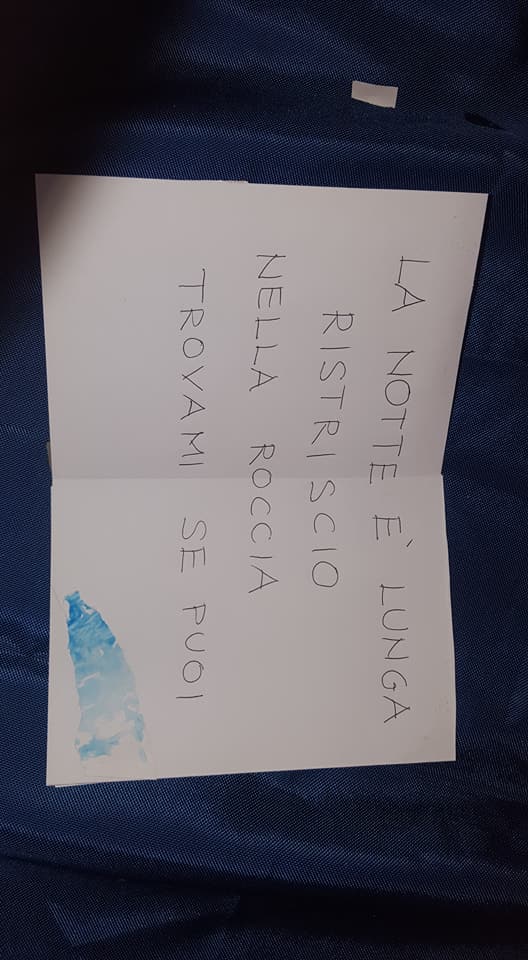 LA NOTTE È LUNGA
RISTRISCIO
NELLA ROCCIA
TROVAMI SE PUOI